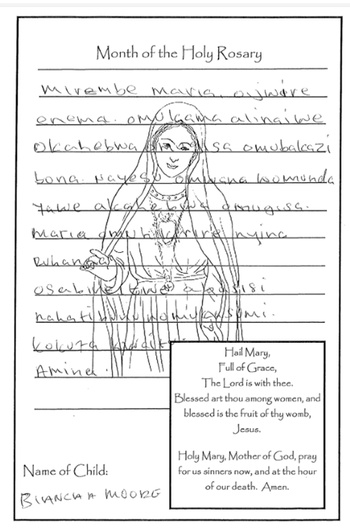 Month of the Holy Rosary
Mirembe Maria, oijwire
enema. omukama alinaiwe
Okahebwa sa omubakazi
bona. Nayesu omwana womunda
yawe akahebwa omugisa.
Maria nyina
Ruhanga
Amina.
Hail Mary,
Full of Grace,
The Lord is with thee.
Blessed art thou among women, and
blessed is the fruit of thy womb,
Jesus.
Holy Mary, Mother of God, pray
for us sinners now, and at the hour
of our death. Amen.
Name of Child:
BIANCHA MOORE